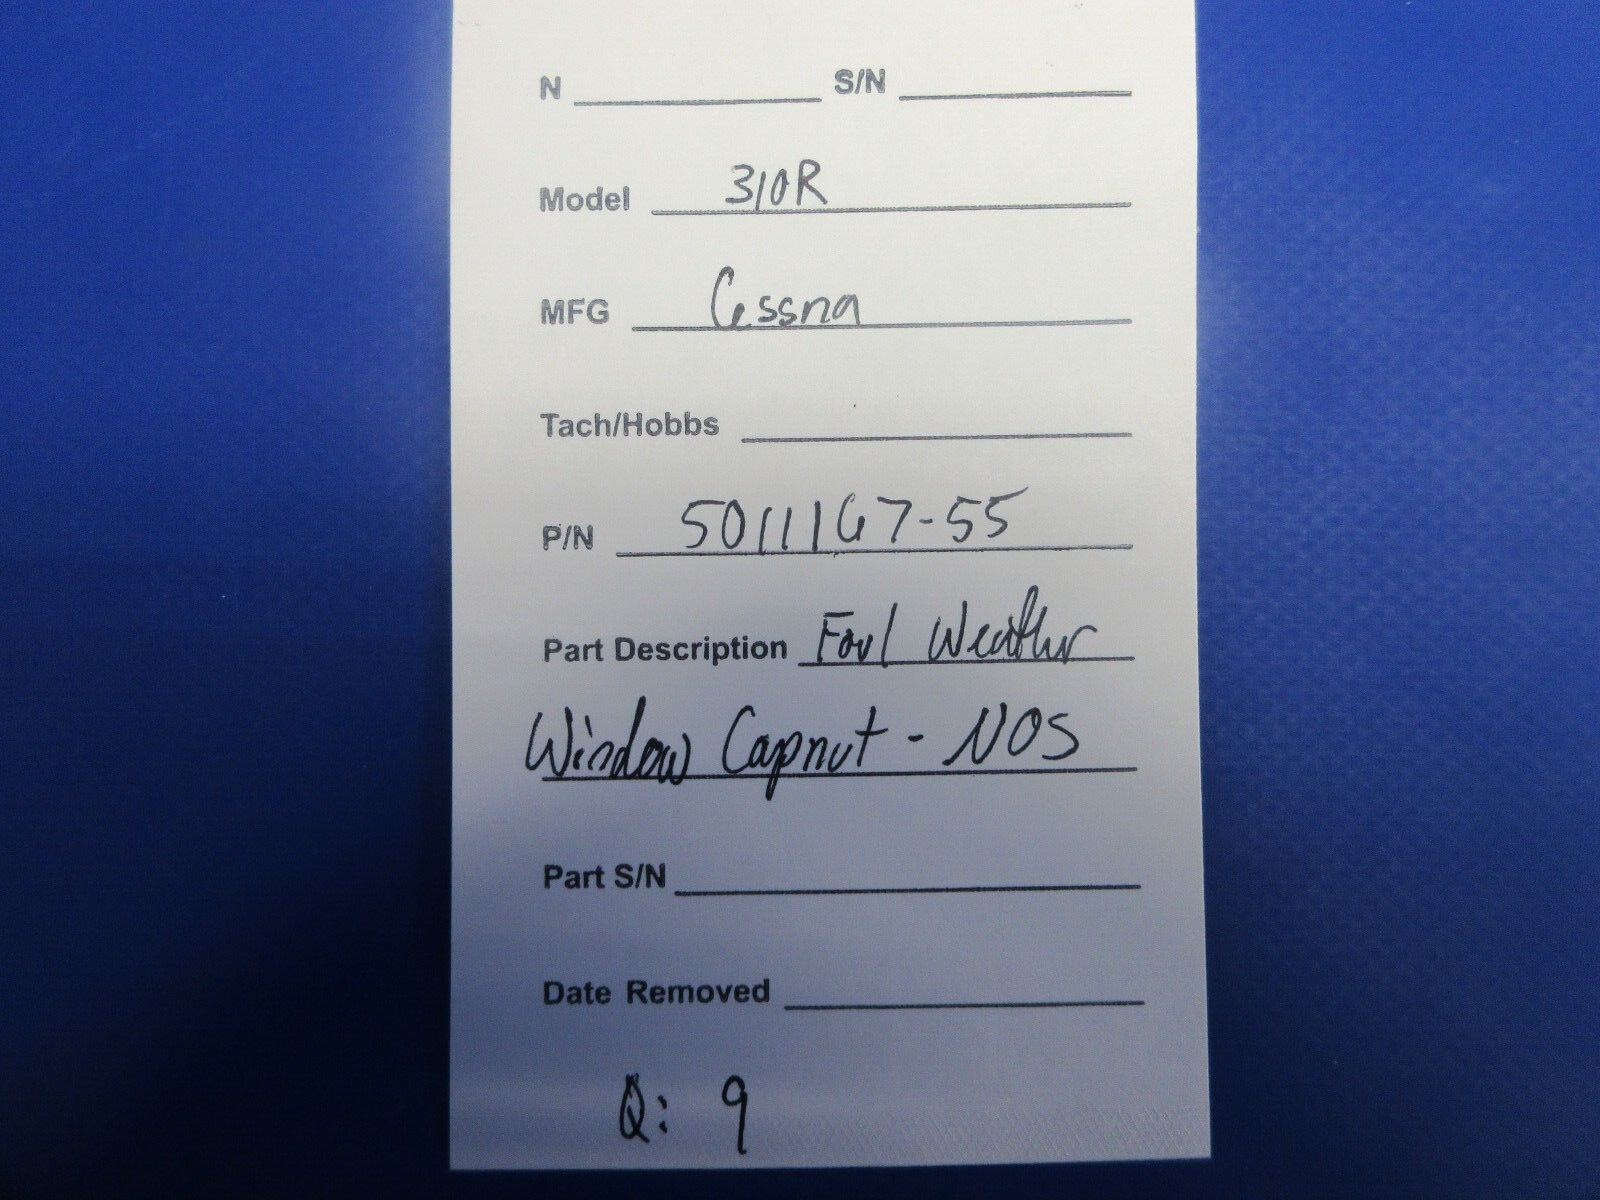 N S/N
Model 310R
MFG Cessna
Tach/Hobbs
P/N 5011167-55
Part Description Foul Weather
Window Capnut - NOS
Part S/N
Date Removed
Q: 9